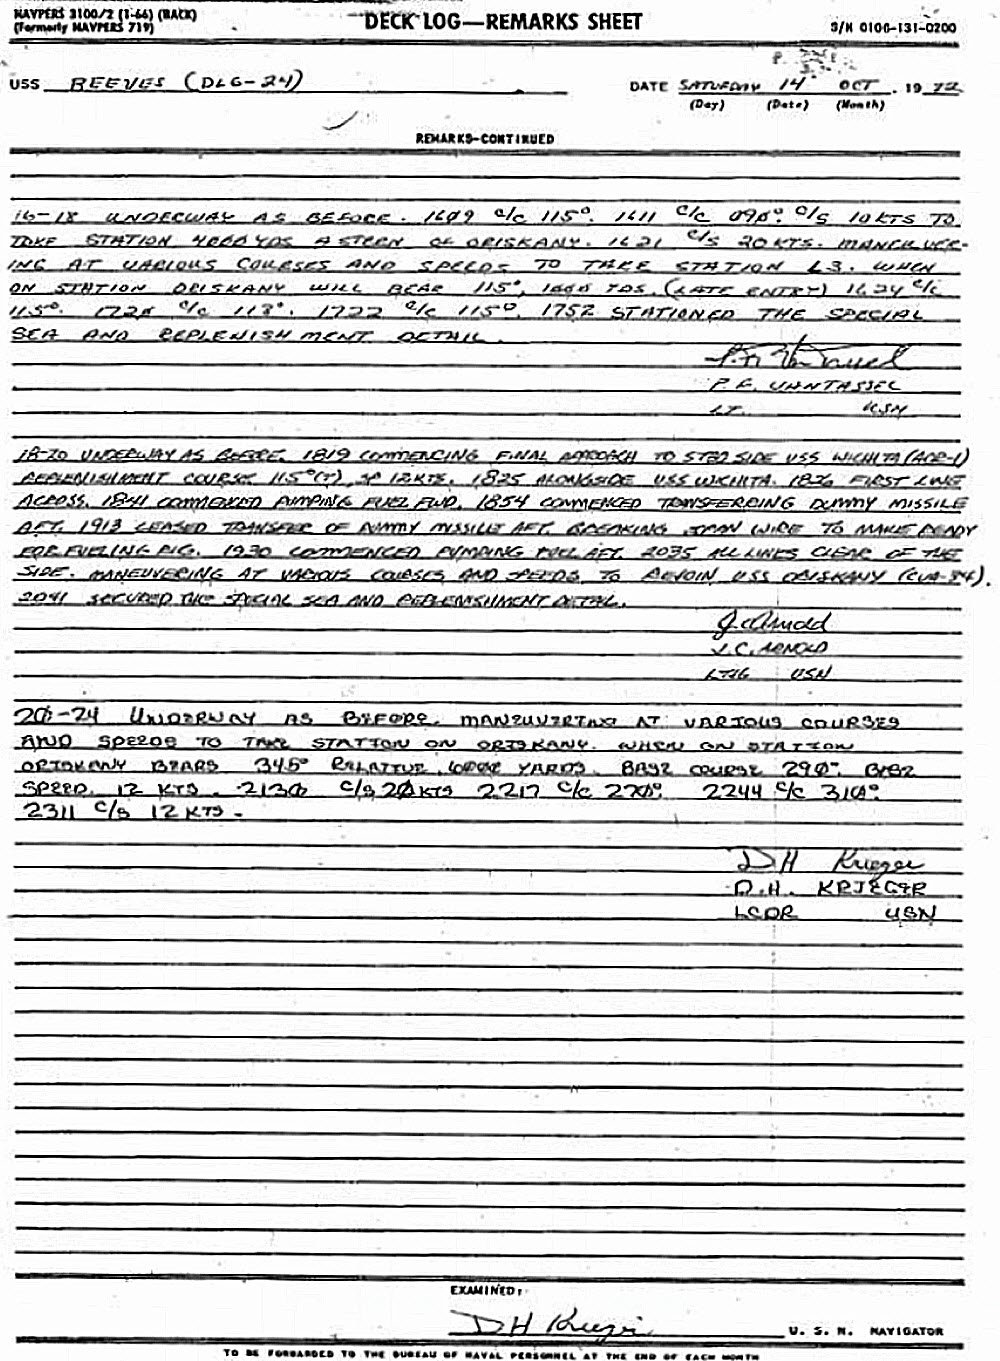 NAVPERS 3100/2 (1-66) (BACK)
(Formerly NAVPERS 719)
DECK LOG—REMARKS SHEET
S/N 0106-131-0200
USS REEVES (DLG-24)
DATE SATURDAY 14 OCT 19 72
(Day) (Date) (Month)
REMARKS-CONTINUED
16-18 UNDERWAY AS BEFORE. 1609 C/C 115°. 1611 C/C 090°. C/S 10 KTS TO
TAKE STATION 4000 YDS ASTERN OF ORISKANY. 1621 C/S 20 KTS. MANEUVER-
ING AT VARIOUS COURSES AND SPEEDS TO TAKE STATION L3. WHEN
ON STATION ORISKANY WILL BEAR 115°, 1000 YDS. (LATE ENTRY) 1624 C/C
115°. 1720 C/C 113°. 1722 C/C 115°. 1752 STATIONED THE SPECIAL
SEA AND REPLENISHMENT DETAIL.
VANTASSEL
LT. USN
18-20 UNDERWAY AS BEFORE. 1819 COMMENCING FINAL APPROACH TO STBD SIDE USS WICHITA (AOR-1)
REPLENISHMENT COURSE 115°(T), SP 12 KTS. 1825 ALONGSIDE USS WICHITA. 1826 FIRST LINE
ACROSS. 1841 COMMENCED PUMPING FUEL FWD. 1854 COMMENCED TRANSFERRING DUMMY MISSILE
AFT. 1913 CEASED TRANSFER OF DUMMY MISSILE AFT. BREAKING SPAN WIRE TO MAKE READY
FOR FUELING RIG. 1930 COMMENCED PUMPING FUEL AFT. 2035 ALL LINES CLEAR OF THE
SIDE. MANEUVERING AT VARIOUS COURSES AND SPEEDS TO REJOIN USS ORISKANY (CVA-34).
2041 SECURED THE SPECIAL SEA AND REPLENISHMENT DETAIL.
J.C. Arnold
J.C. ARNOLD
LTJG USN
20-24 UNDERWAY AS BEFORE. MANEUVERING AT VARIOUS COURSES
AND SPEEDS TO TAKE STATION ON ORISKANY. WHEN ON STATION
ORISKANY BEARS 345° RELATIVE, YARDS. BASE COURSE 290°. BASE
SPEED 12 KTS. 2130 C/S 20 KTS 2217 C/C 270°. 2244 C/C 310°.
2311 C/S 12 KTS.
DH Krieger
D.H. KRIEGER
LCDR USN
EXAMINED:
DH Krieger U. S. N. NAVIGATOR
TO BE FORWARDED TO THE BUREAU OF NAVAL PERSONNEL AT THE END OF EACH MONTH